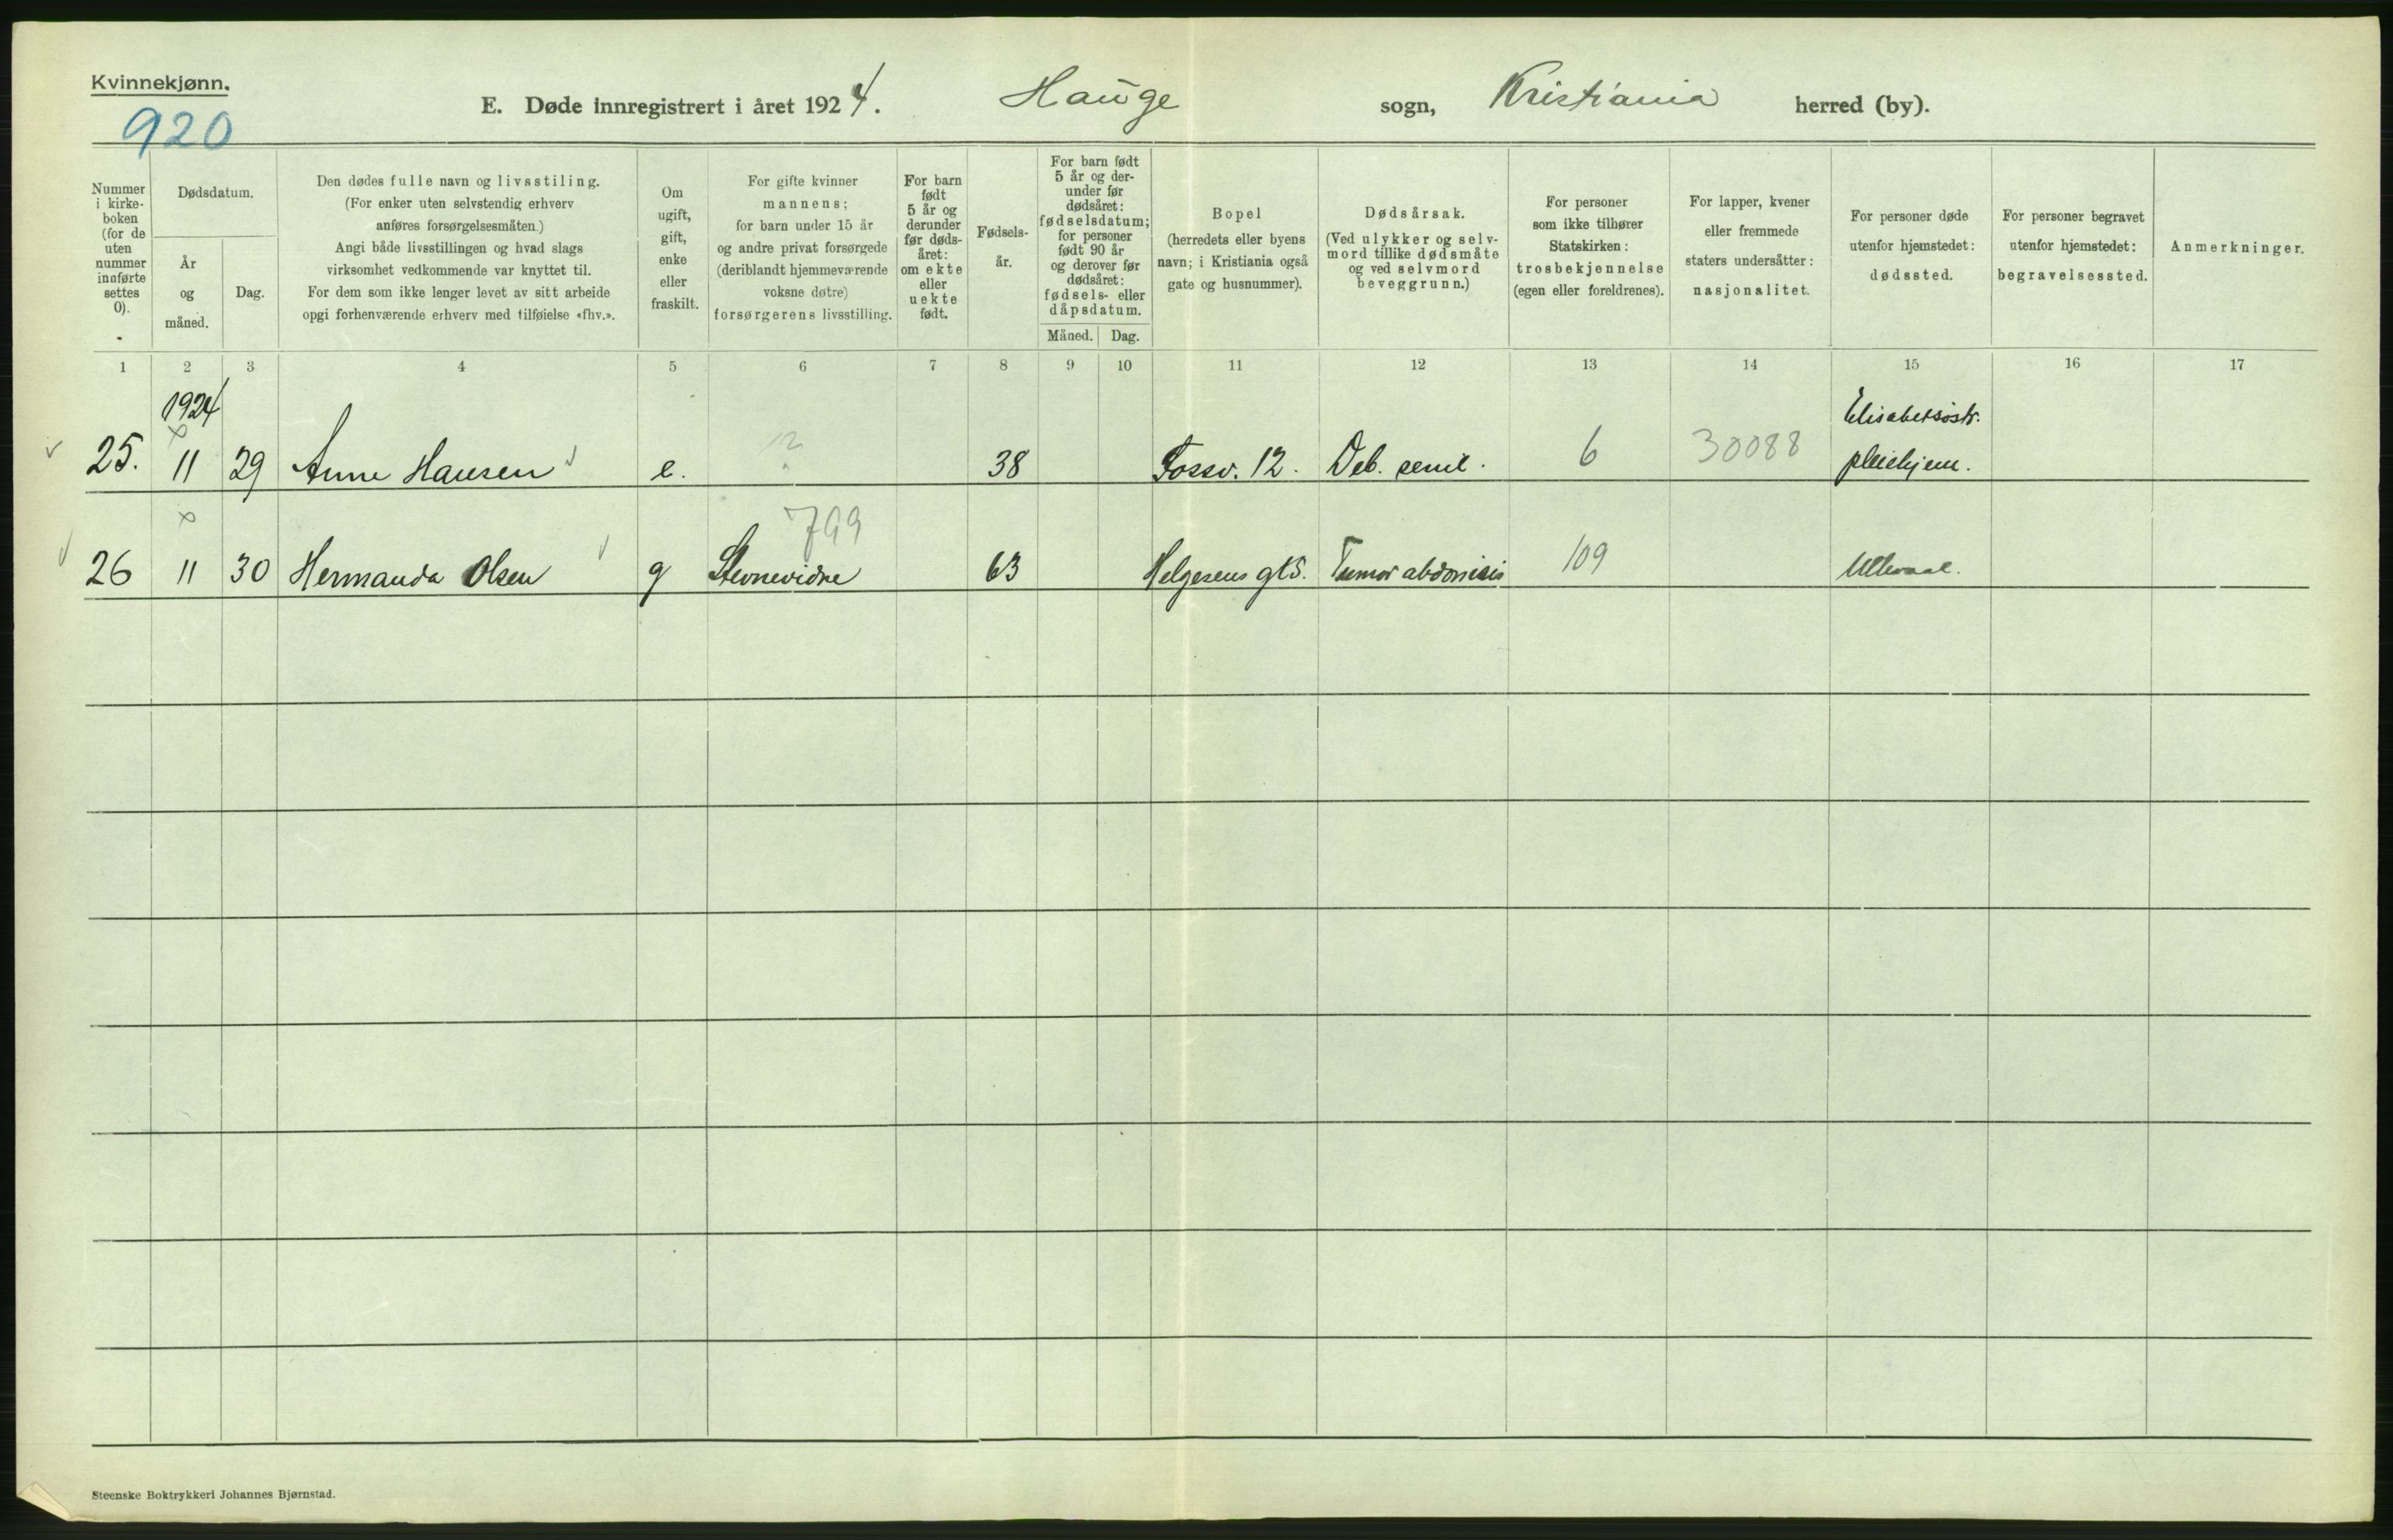 Kvinnekjønn.
920
E. Døde innregistrert i året 1924. Hauge sogn, Kristiania herred (by).
Nummer i kirke- boken (for de uten nummer innførte settes 0).
Dødsdatum.
År og måned.
Dag.
Den dødes fulle navn og livsstiling.
(For enker uten selvstendig erhverv
anføres forsørgelsesmåten.)
Angi både livsstillingen og hvad slags
virksomhet vedkommende var knyttet til.
For dem som ikke lenger levet av sitt arbeide
opgi forhenværende erhverv med tilføielse «fhv.».
Om ugift, gift, enke eller fraskilt.
For gifte kvinner
mannens;
for barn under 15 år
og andre privat forsørgede
(deriblandt hjemmeværende
voksne døtre)
forsørgerens livsstilling.
For barn født 5 år og derunder før døds- året: om ekte eller uekte født.
Fødsels- år.
For barn født
5 år og der-
under før
dødsåret:
fødselsdatum;
for personer
født 90 år
og derover før
dødsåret:
fødsels- eller
dåpsdatum.
Måned. Dag.
Bopel
(herredets eller byens
navn; i Kristiania også
gate og husnummer).
Dødsårsak.
(Ved ulykker og selv-
mord tillike dødsmåte
og ved selvmord
beveggrunn.)
For personer
som ikke tilhører
Statskirken:
trosbekjennelse
(egen eller foreldrenes).
For lapper, kvener
eller fremmede
staters undersåtter:
nasjonalitet.
For personer døde
utenfor hjemstedet:
dødssted.
For personer begravet
utenfor hjemstedet:
begravelsessted.
Anmerkninger.
1 2 3 4 5 6 7 8 9 10 11 12 13 14 15 16 17
1924
25. 11 29 Anne Hansen e. ? 38 Fossv. 12. Deb. senil. 6 30088 Elisabetsøstr. pleiehjem.
799
26 11 30 Hermanda Olsen g Stevnevidne 63 Helgesens gt 5. Tumor abdominis 109 Ullevaal.
Steenske Boktrykkeri Johannes Bjørnstad.